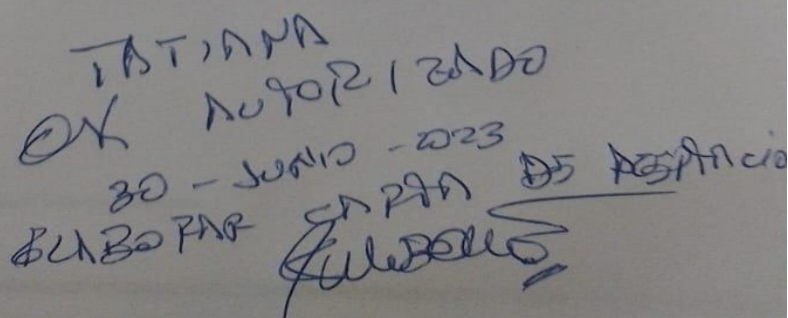 TATIANA
OK AUTORIZADO
30 - JUNIO - 2023
ELABORAR CARTA DE